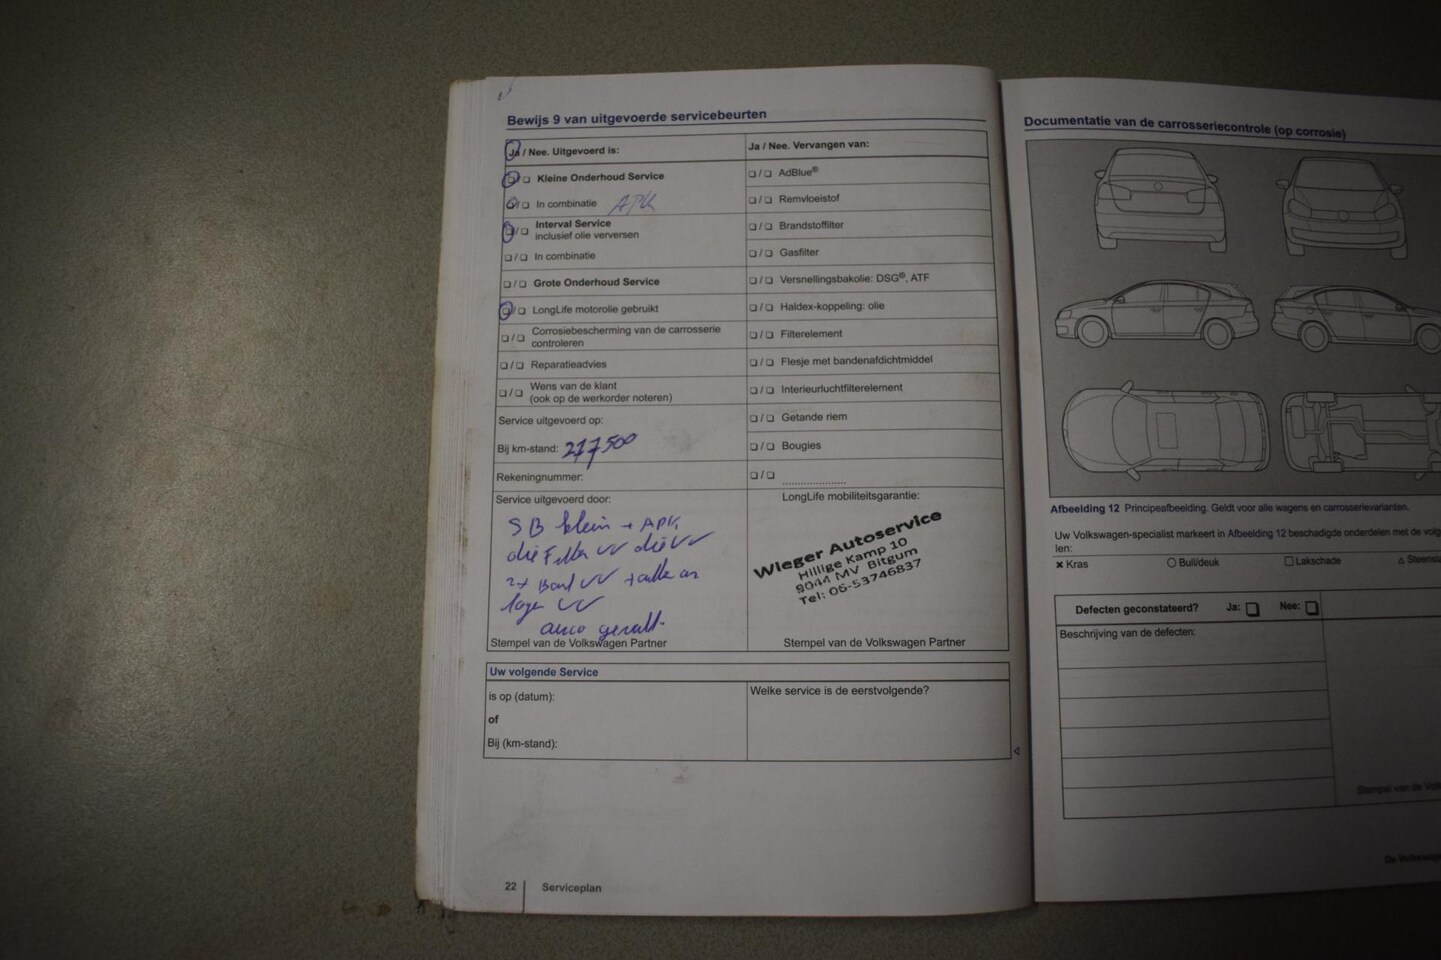 Bewijs 9 van uitgevoerde servicebeurten
Ja / Nee. Uitgevoerd is:
❏/❏ Kleine Onderhoud Service
❏/❏ In combinatie APK
❏/❏ Interval Service
inclusief olie verversen
❏/❏ In combinatie
❏/❏ Grote Onderhoud Service
❏/❏ LongLife motorolie gebruikt
❏/❏ Corrosiebescherming van de carrosserie
controleren
❏/❏ Reparatieadvies
❏/❏ Wens van de klant
(ook op de werkorder noteren)
Service uitgevoerd op:
Bij km-stand: 217500
Rekeningnummer:
Service uitgevoerd door:
SB klein + APK
olie Filter VV olie VV
2x Band VV
VV
Stempel van de Volkswagen Partner
Ja / Nee. Vervangen van:
❏/❏ AdBlue®
❏/❏ Remvloeistof
❏/❏ Brandstoffilter
❏/❏ Gasfilter
❏/❏ Versnellingsbakolie: DSG®, ATF
❏/❏ Haldex-koppeling: olie
❏/❏ Filterelement
❏/❏ Flesje met bandenafdichtmiddel
❏/❏ Interieurluchtfilterelement
❏/❏ Getande riem
❏/❏ Bougies
❏/❏ ....................
LongLife mobiliteitsgarantie:
Wieger Autoservice
Hillige Kamp 10
9044 MV Bitgum
Tel: 06-53746837
Stempel van de Volkswagen Partner
Uw volgende Service
is op (datum):
of
Bij (km-stand):
Welke service is de eerstvolgende?
22 Serviceplan
Documentatie van de carrosseriecontrole (op corrosie)
Afbeelding 12 Principeafbeelding. Geldt voor alle wagens en carrosserievarianten.
Uw Volkswagen-specialist markeert in Afbeelding 12 beschadigde onderdelen met de volg
len:
✖ Kras
○ Buil/deuk
□ Lakschade
△ Steensl
Defecten geconstateerd? Ja: ❏ Nee: ❏
Beschrijving van de defecten:
Stempel van de Volk
De Volkswage